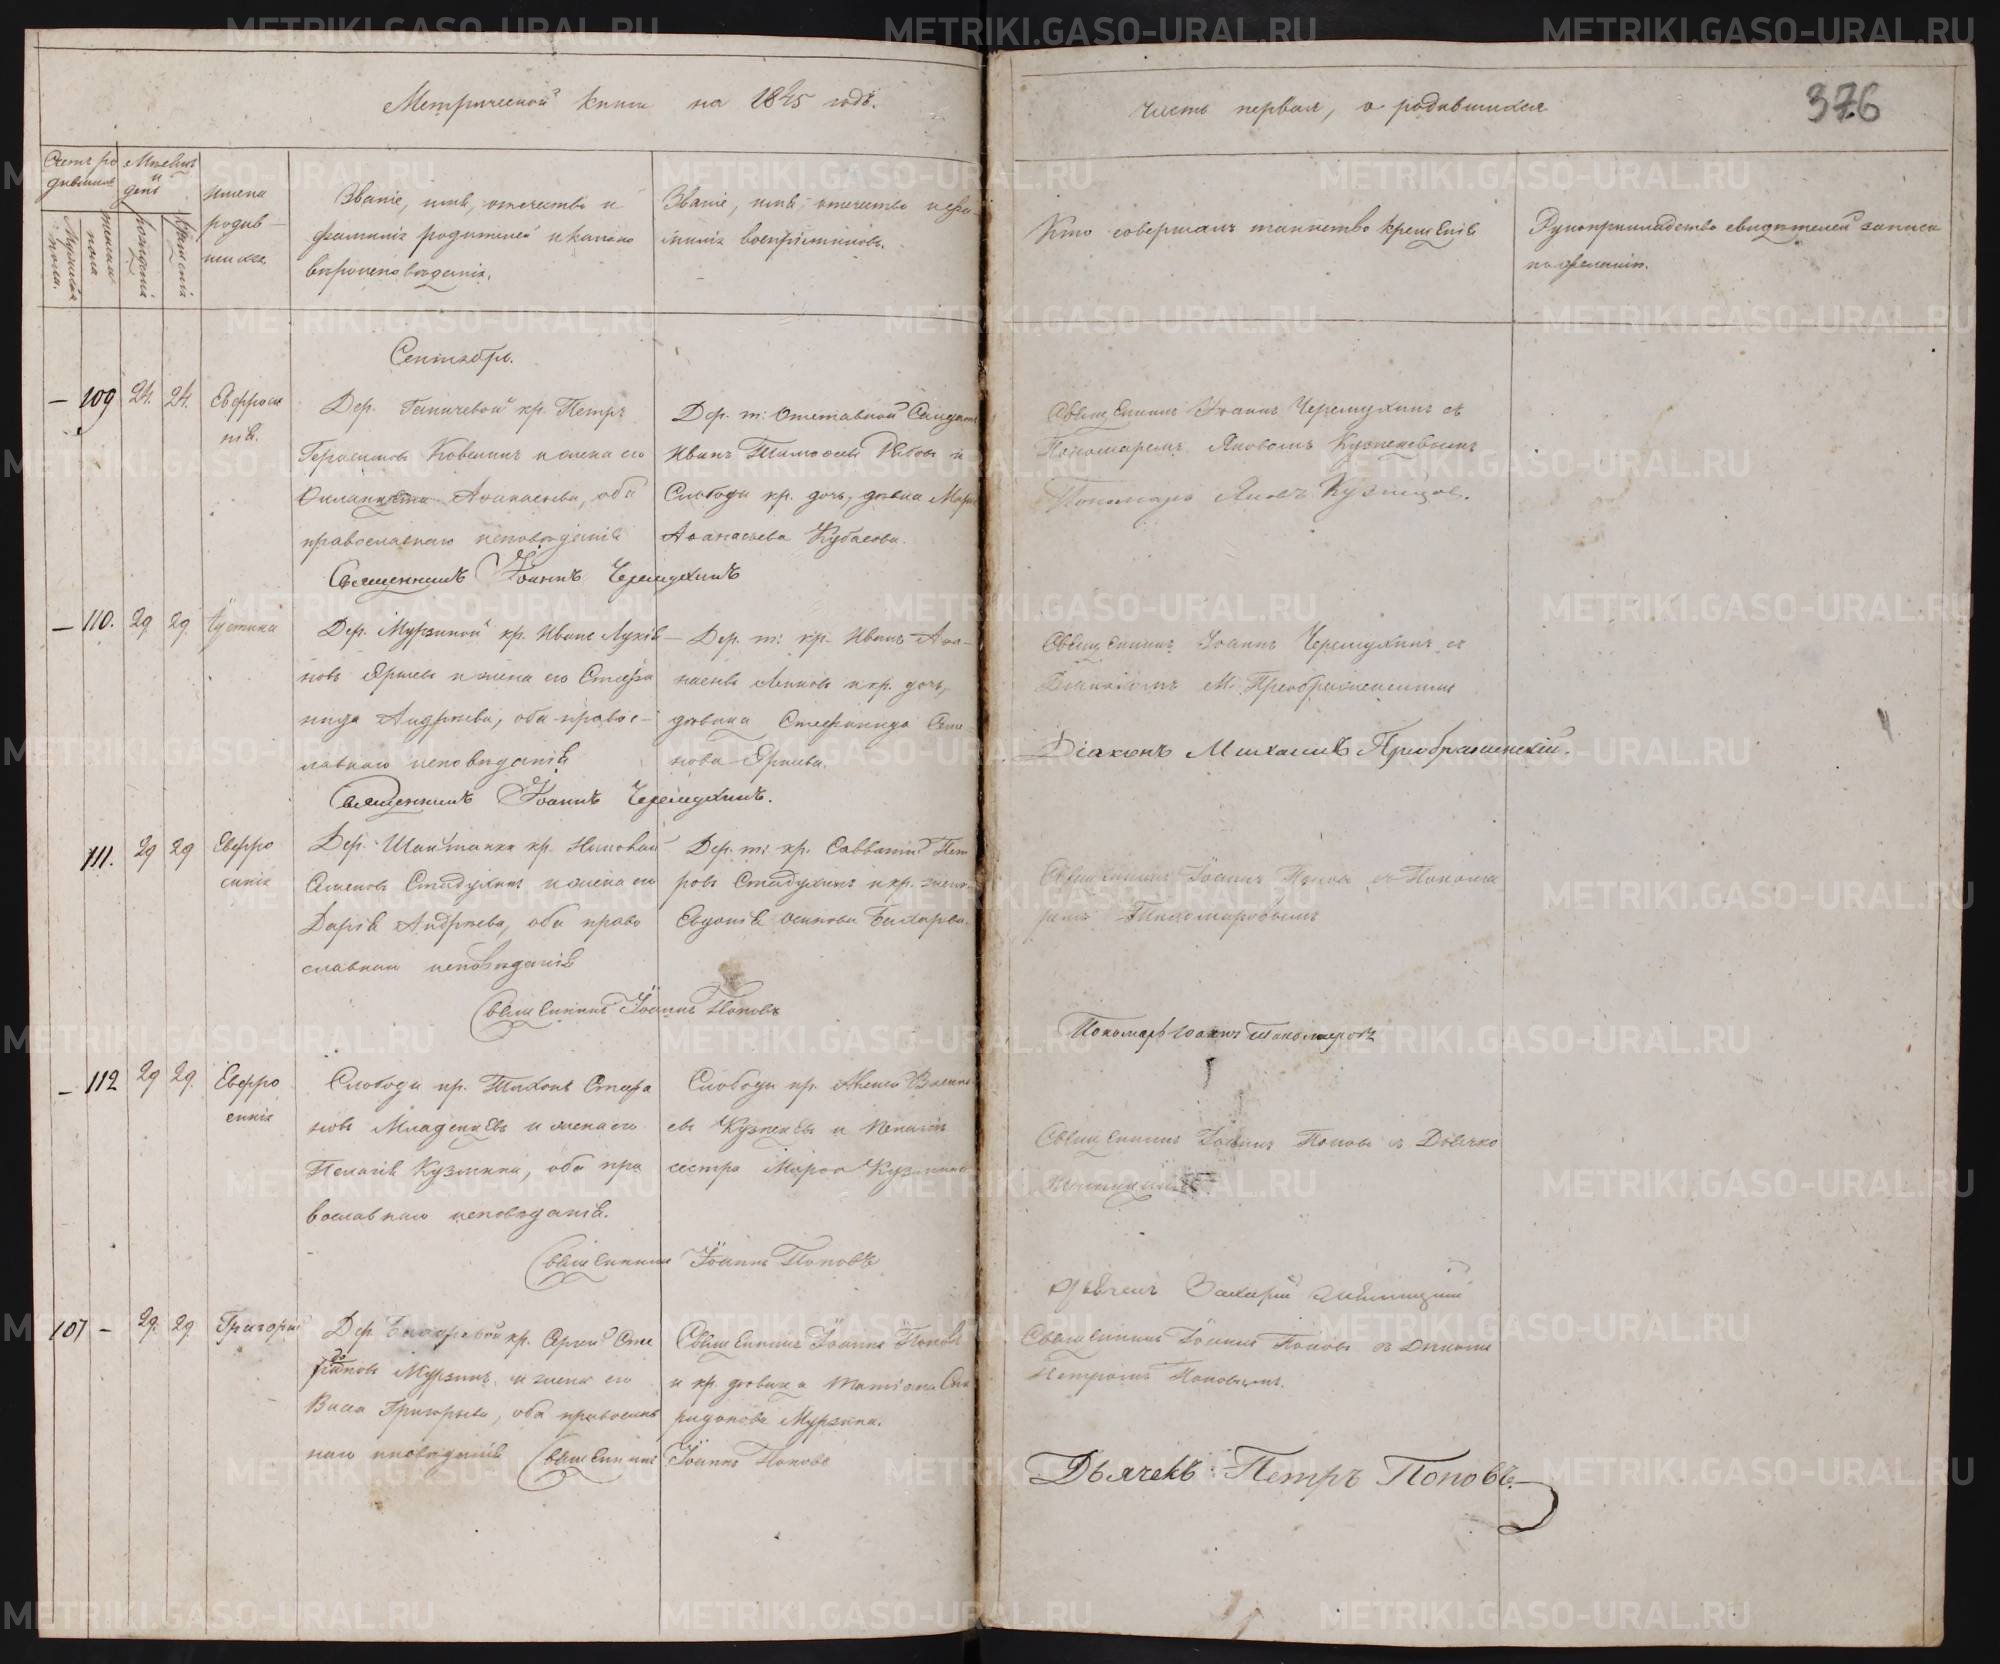 Метрической книги на 1845 годъ.
часть первая, о родившихся
376
Счетъ ро
дившихся
Мужеска
пола.
женска
пола
Мѣсяцъ
и
день
рожденія
крещенія
Имена
родив-
шихся
Званіе, имя, отчество и
фамилія родителей и какого
вѣроисповѣданія.
Званіе, имя отчество и фа-
милія воспріемниковъ.
Кто совершалъ таинство крещенія
Рукоприкладство свидѣтелей записи
по желанію.
Сентябрь.
— 109 24. 24. Евфроси
нія.
Дер. Ганичевой кр. Петръ
Герасимовъ Ковелинъ и жена его
Аѳанасьева, оба
православнаго исповѣданія
Священникъ Іоаннъ Черемухинъ
Дер. т: Отставной Солдатъ
Иванъ Тимоѳеевъ и
Слободы кр. дочь, дѣвка Марѳа
Аѳанасьева Кубасова.
Священникъ Іоаннъ Черемухинъ съ
Пономаремъ Яковомъ Кузнецовымъ
Пономарь Яковъ Кузнецовъ.
— 110. 29 29. Устинія
Дер. Мурзиной кр. Иванъ Лукія-
новъ Ярцевъ и жена его Стефа
нида Андреева, оба правос-
лавнаго исповѣданія
Священникъ Іоаннъ Черемухинъ.
Дер. т: кр. Иванъ Аѳа-
насьевъ и кр. дочь,
дѣвица Стефанида Семе
нова Ярцева.
Священникъ Іоаннъ Черемухинъ съ
Діакономъ М. Преображенскимъ
Діаконъ Михаилъ Преображенскій.
111. 29 29 Евфро
синія
Дер. Шайтанки кр. Николай
Семеновъ Стадухинъ и жена его
Дарія Андреева, оба право
славнаго исповѣданія
Священникъ Іоаннъ Поповъ
Дер. т: кр. Савватій Пет
ровъ Стадухинъ и кр. жена
Евдокія Осипова Бахарева.
Священникъ Іоаннъ Поповъ съ Понома
ремъ Тихомировымъ
Пономарь Іоаннъ Тихомировъ
— 112 29 29. Евфро
синія
Слободы кр. Тихонъ Стефа
новъ Младенцевъ и жена его
Пелагія Кузмина, оба пра
вославнаго исповѣданія.
Священникъ Іоаннъ Поповъ
Слободы кр. Алексѣй Василь
евъ Кузнецовъ и
сестра Марѳа Кузмина
Священникъ Іоаннъ Поповъ съ Дьячко
Дьячекъ Захарій
107 — 29. 29 Григорій
Дер. Бахаревой кр. Сергей Спи
ридоновъ Мурзинъ и жена его
Васса Григорьева, оба православ
наго исповѣданія Священникъ Іоаннъ Поповъ
Священникъ Іоаннъ Поповъ
и кр. дѣвица Татіана Спи
ридонова Мурзина.
Священникъ Іоаннъ Поповъ съ Дьячкомъ
Петромъ Поповымъ.
Дьячекъ Петръ Поповъ.